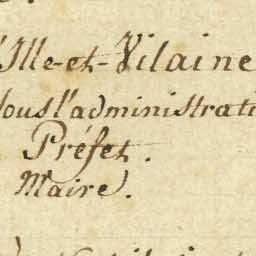 'Ille-et-Vilaine
sous l'administrati
Préfet.
Maire.